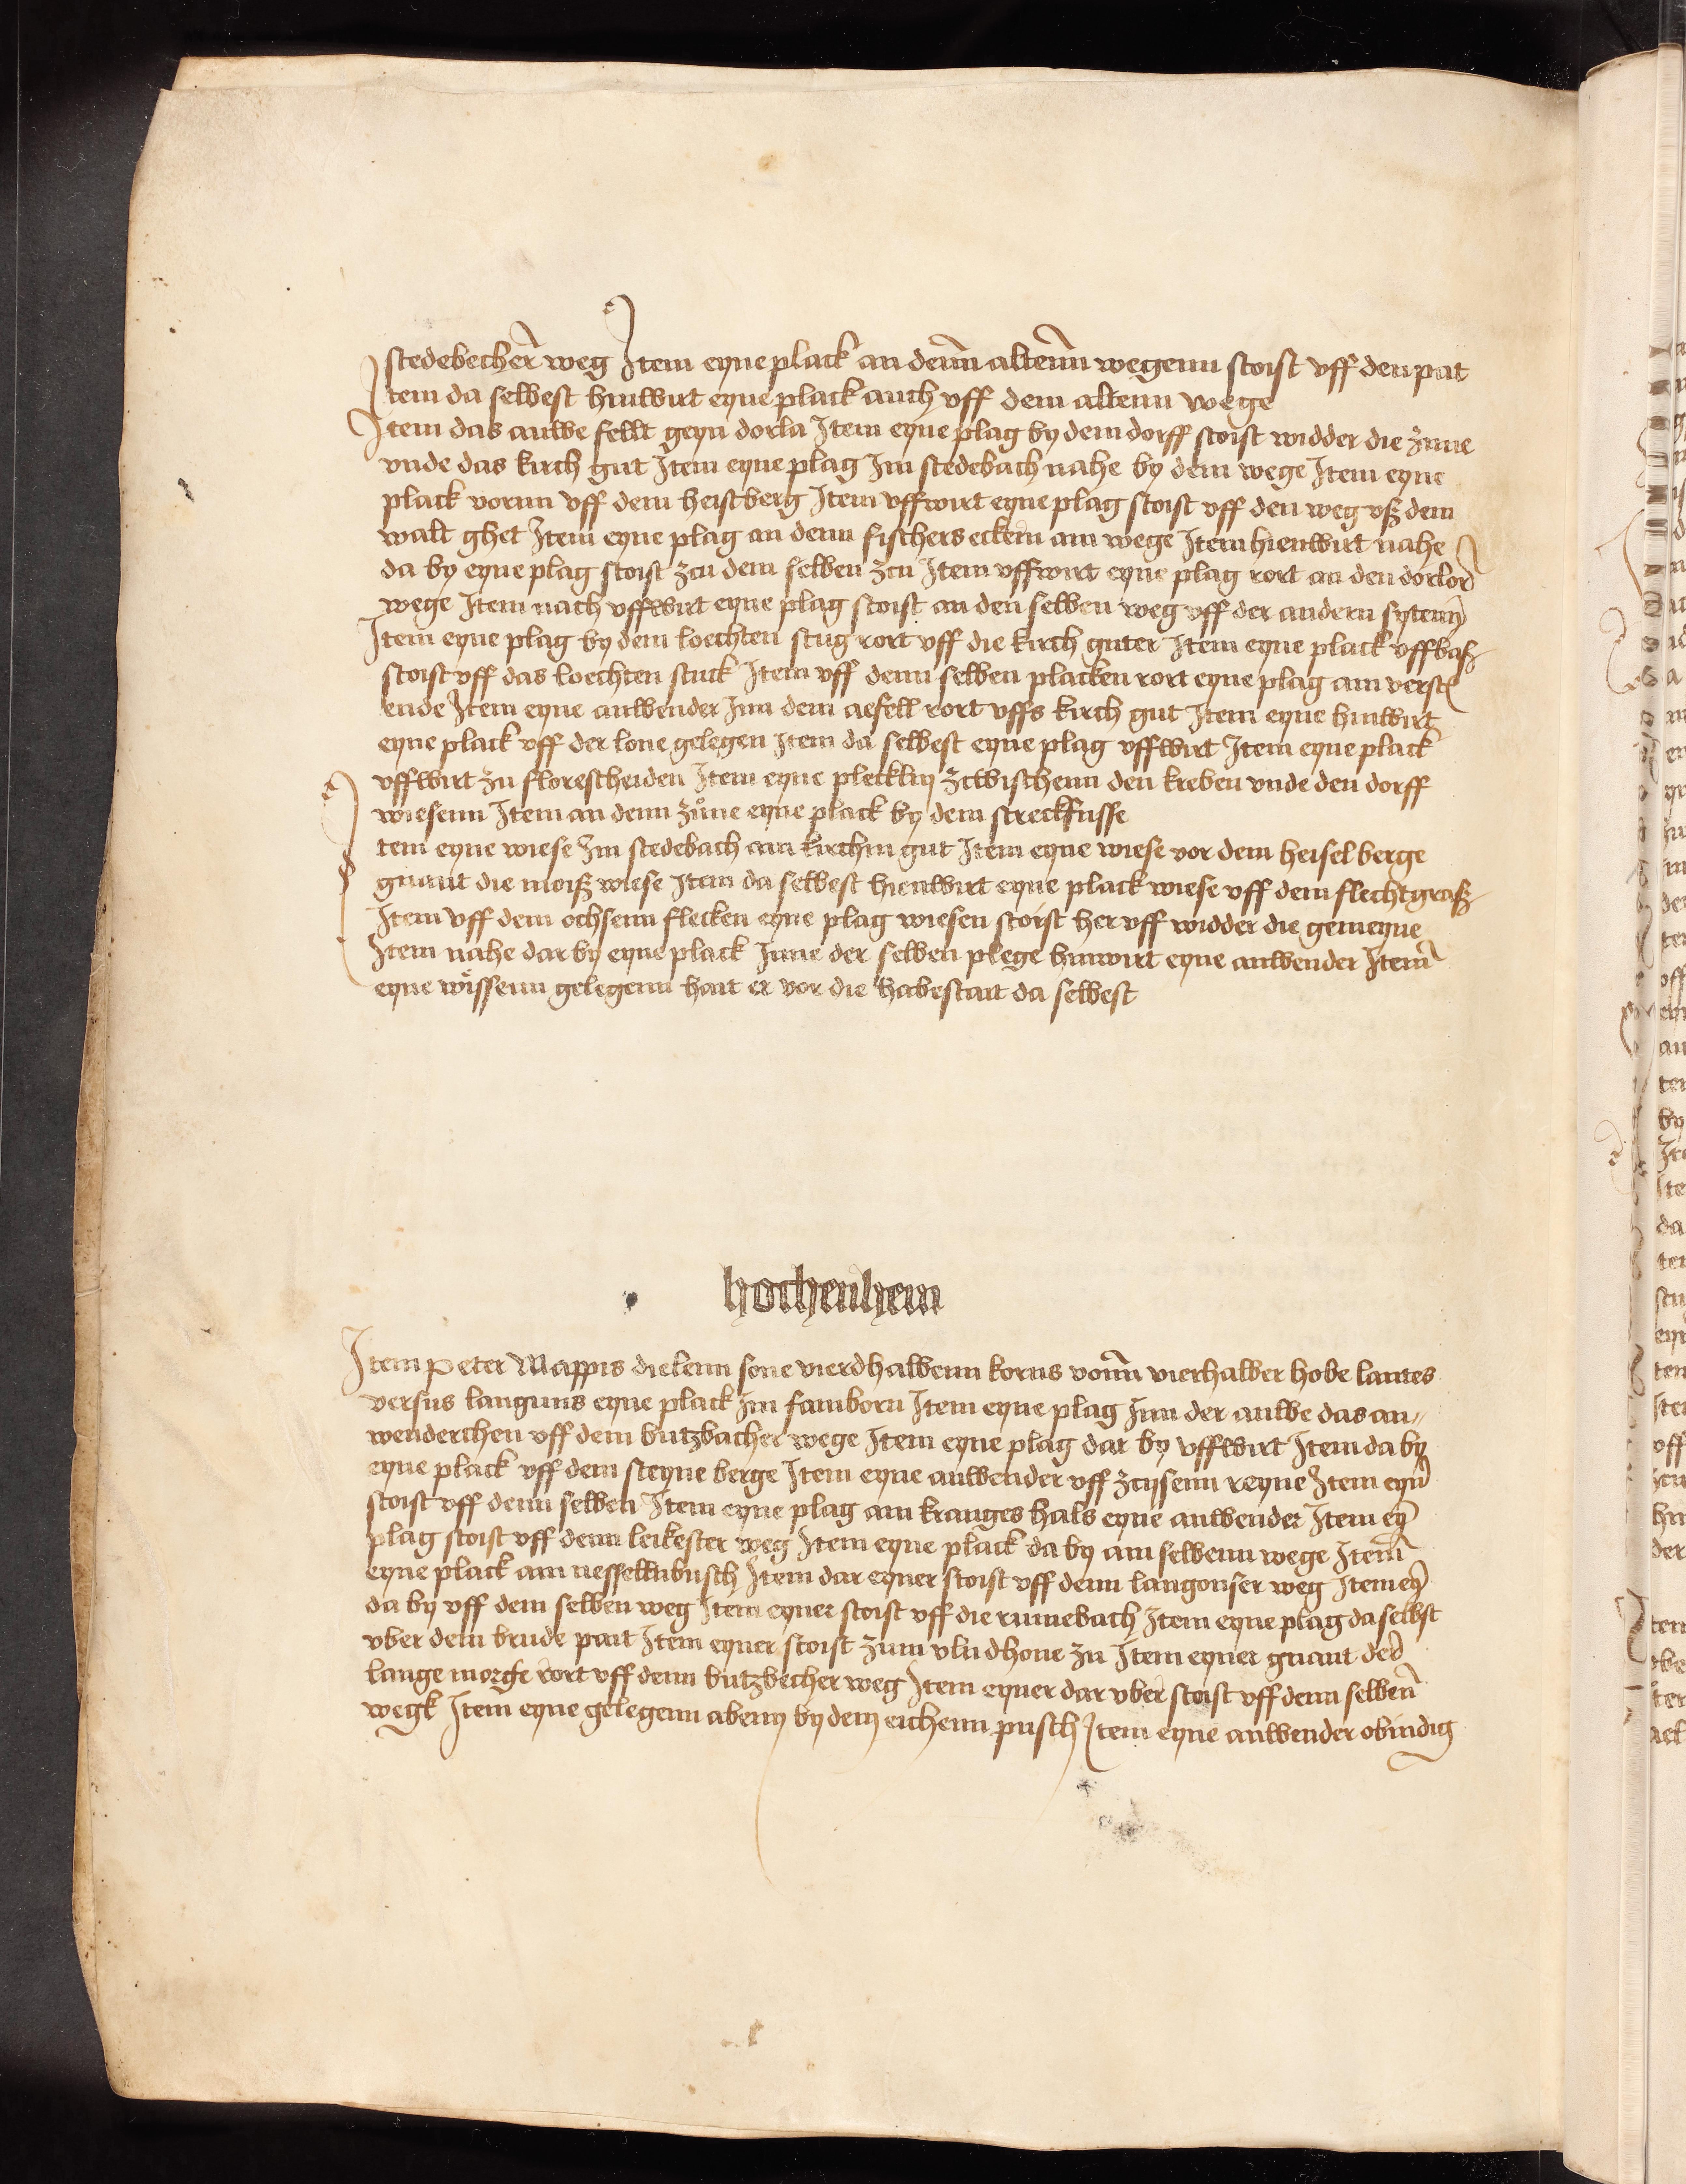 stedebecher weg Item eyne plack an denn altenn wegenn stoist vff den pat
Item da selbest hinwirt eyne plack auch vff dem altenn wege
Item das auwe fellt geyn dorla Item eyne plag by dem dorff stoist widder die zune
vnde das kirch gut Item eyne plag Im stedebach nahe by dem wege Item eyne
plack vornn vff dem heistberg Item vffwirt eyne plag stoist vff den weg vß dem
walt ghet Item eyne plag an denn fischers eckern am wege Item hienwirt nahe
da by eyne plag stoist zcu dem selben zcu Item vffwirt eyne plag rort an den dorlor
wege Item nach vffwirt eyne plag stoist an den selben weg vff der andern syten
Item eyne plag by dem loechten stug rort vff die kirch guter Item eyne plack vffbaß
stoist vff das loechten stuck Item vff denn selben placken rort eyne plag am verst
ende Item eyne anwender Inn dem aefell rort vffs kirch gut Item eyne hinwirt
eyne plack vff der lone gelegen Item da selbest eyne plag vffwirt Item eyne plack
vffwirt zu florescheiden Item eyne plecklin zcwischenn den kreben vnde den dorff
wiesenn Item an denn zune eyne plack by dem streckfusse
Item eyne wiese Im stedebach an kirchin gut Item eyne wiese vor dem heisel berge
gnant die moiß wiese Item da selbest hienwirt eyne plack wiese vff dem flechtgraß
Item vff dem ochsenn flecken eyne plag wiesen stoist her vff widder die gemeyne
Item nahe dar by eyne plack Inne der selben plege hinwirt eyne anwender Item
eyne wissenn gelegenn hait er vor die habestait da selbest
hochenhem
Item Peter Mappis dielenn sone vierdhalbenn korns vonn vierhalber hobe lantes
versus langnns eyne plack Im famborn Item eyne plag Inn der auwe das an//
wenderchen vff dem butzbacher wege Item eyne plag dar by vffwirt Item da by
eyne plack vff dem steyne berge Item eyne anwender vff zcysenn reyne Item eyn
stoist vff denn selben Item eyne plag am kranges hals eyne anwender Item ey
plag stoist vff denn leikester weg Item eyne plack da by am selbenn wege Item
eyne plack am nessellnbusch Item dar eyner stoist vff denn langonser weg Item ey
da by vff dem selben weg Item eyner stoist vff die runebach Item eyne plag daselbst
vber dem brude pait Item eyner stoist zum vludhone zu Item eyner gnant der
lange morge rort vff denn butzbecher weg Item eyner dar vber stoist vff denn selben
wegk Item eyne gelegenn abenn by dem eichenn pusch Item eyne anwender obindig